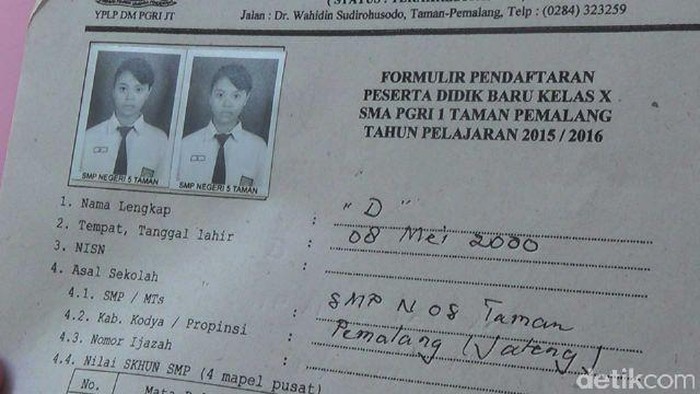 YPLP DM PGRI JT
Jalan : Dr. Wahidin Sudirohusodo, Taman-Pemalang, Telp : (0284) 323259
FORMULIR PENDAFTARAN
PESERTA DIDIK BARU KELAS X
SMA PGRI 1 TAMAN PEMALANG
TAHUN PELAJARAN 2015 / 2016
SMP NEGERI 5 TAMAN
SMP NEGERI 5 TAMAN
1. Nama Lengkap : "D"
2. Tempat, Tanggal lahir : 08 Mei 2000
3. NISN :
4. Asal Sekolah
4.1. SMP / MTs : SMP N 08 Taman
4.2. Kab. Kodya / Propinsi : Pemalang (Jateng)
4.3. Nomor Ijazah :
4.4. Nilai SKHUN SMP (4 mapel pusat)
No.
detikcom